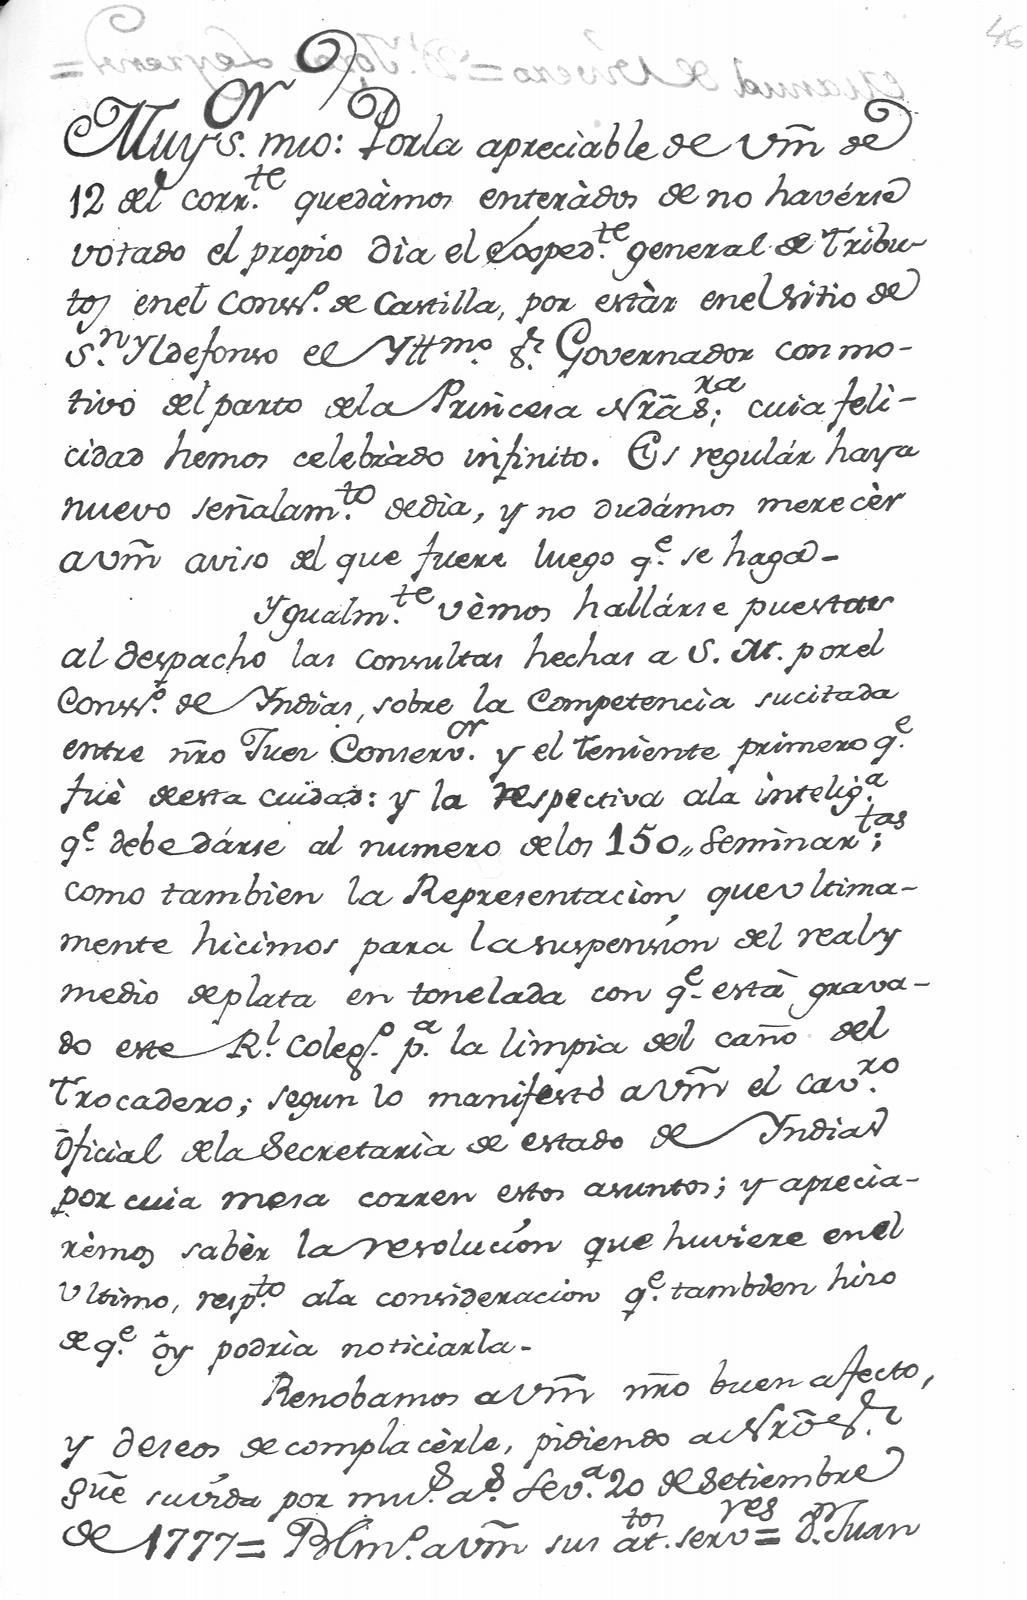 46
Muy s.or mio: Por la apreciable de Vm̃ de
12 del corr.te quedàmos enteràdos de no havérse
votado el propio dia el Exped.te general de Tribu-
tos en el Conss.o de Castilla, por estàr en el sitio de
S.n Yldefonso el Yttmo. S.r Governador con mo-
tivo del parto de la Princesa Nrã S.ra; cuia feli-
cidad hemos celebràdo infinito. Es regulár haya
nuevo señalam.to de dia, y no dudámos merecèr
a Vm̃ aviso del que fuere luego q.e se haga-
Ygualm.te vèmos hallárse puestas
al despacho las consultas hechas a S. M. por el
Conss.o de Yndias, sobre la Competencia sucitada
entre nr̃o Juez Conserv.or y el Teniente primero q.e
fuè de esta cuidad: y la respectiva a la intelig.a
q.e debe dárse al numero de los 150,, Seminar.tas;
como tambien la Representacion que ultima-
mente hicimos para la suspensión del real y
medio de plata en tonelada con q.e està grava-
do este R.l Coleg.o p.a la limpia del caño del
Trocadero; segun lo manifestò a Vm̃ el cav.ro
Oficial de la Secretaria de estado de Yndias
por cuia mesa corren estos asuntos; y aprecia-
rèmos sabèr la resolución que huviere en el
ultimo, resp.to a la consideracion q.e tambien hizo
de q.e õy podria noticiarla-
Renobamos a Vm̃ nr̃o buen afecto,
y deseos de complacèrle, pidiendo a Nrõ S.r
gũe su vida por mu.s a.s Sev.a 20 de Setiembre
de 1777= Blm.o a Vm̃ sus at.tos serv.res= D.n Juan